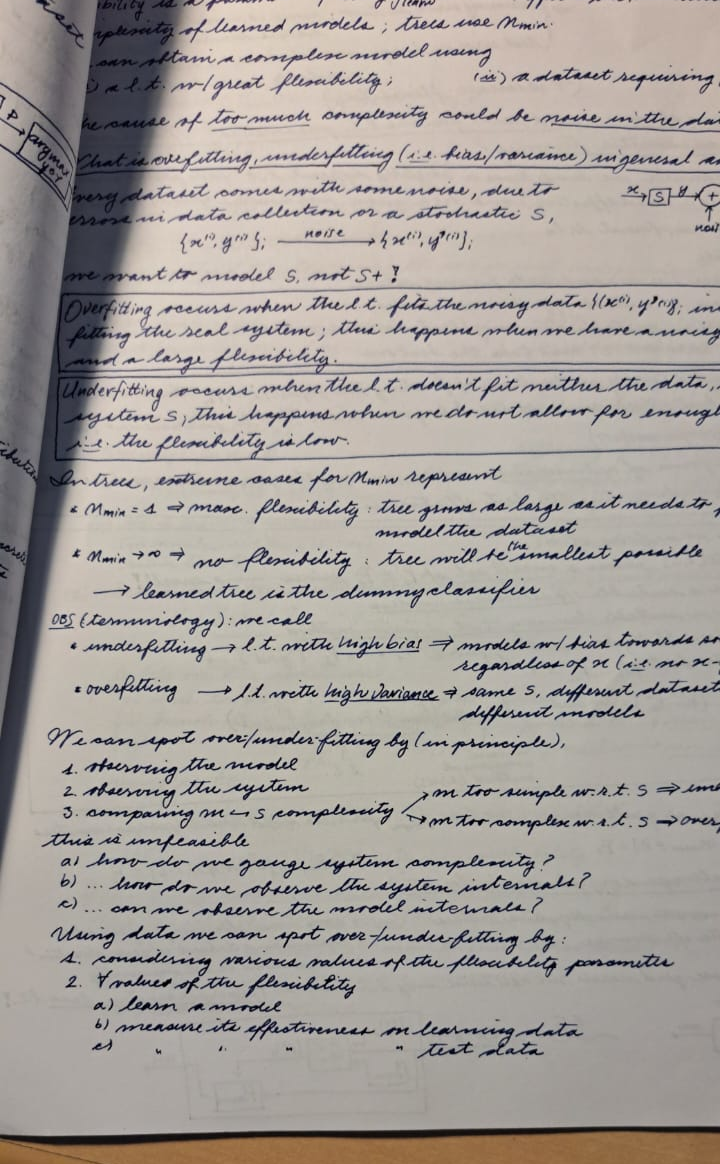 plexity of learned models; trees use n_min.
can obtain a complex model using
i) a l.t. w/ great flexibility; (ii) a dataset requiring
he cause of too much complexity could be noise in the dat
What is overfitting, underfitting (i.e. bias/variance) in general an
very dataset comes with some noise, due to
errors in data collection or a stochastic S,
x → S y → +
{x⁽ⁱ⁾, y⁽ⁱ⁾}ᵢ noise → {x⁽ⁱ⁾, y'⁽ⁱ⁾}ᵢ
we want to model S, not S+!
P → argmax
Overfitting occurs when the l.t. fits the noisy data {(x⁽ⁱ⁾, y'⁽ⁱ⁾)}ᵢ in
fitting the real system; this happens when we have a noisy
and a large flexibility.
Underfitting occurs when the l.t. doesn't fit neither the data,
system S; this happens when we do not allow for enough
i.e. the flexibility is low.
In trees, extreme cases for n_min represent
* n_min = 1 ⇒ max. flexibility: tree grows as large as it needs to
model the dataset
* n_min → ∞ ⇒ no flexibility: tree will be the smallest possible
→ learned tree is the dummy classifier
OBS (terminology): we call
* underfitting → l.t. with high bias ⇒ models w/ bias towards so
regardless of x (i.e. no x-
* overfitting → l.t. with high variance ⇒ same S, different dataset
different models
We can spot over-/under-fitting by (in principle),
1. observing the model
2. observing the system
3. comparing m ↔ S complexity → m too simple w.r.t. S ⇒ und
→ m too complex w.r.t. S ⇒ over
this is unfeasible
a) how do we gauge system complexity?
b) ... how do we observe the system internals?
c) ... can we observe the model internals?
Using data we can spot over-/under-fitting by:
1. considering various values of the flexibility parameter
2. ∀ values of the flexibility
a) learn a model
b) measure its effectiveness on learning data
c) " " " " test data